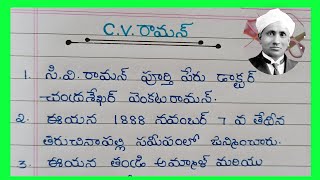 C.V. రామన్
1. సి.వి. రామన్ పూర్తి పేరు డాక్టర్
చంద్రశేఖర్ వెంకటరామన్.
2. ఈయన 1888 నవంబర్ 7 వ తేదీన
తిరుచినాపల్లి సమీపంలో జన్మించారు.
3. ఈయన తండ్రి అమ్మాళ్ మరియు